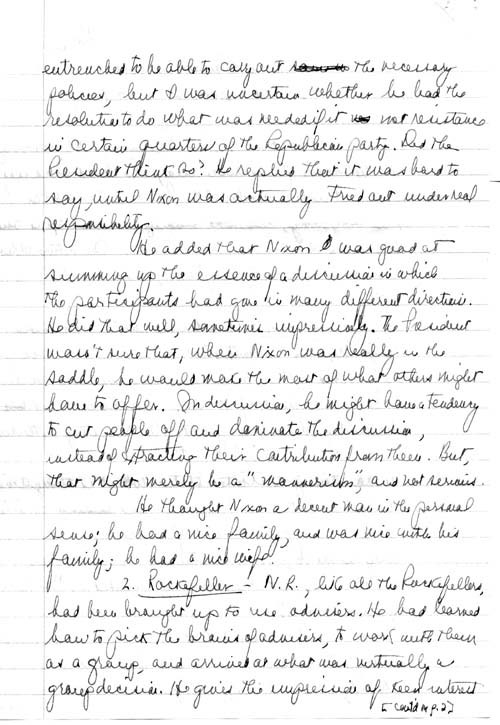 entrenched to be able to carry out the necessary
policies, but I was uncertain whether he had the
resolution to do what was needed if it met resistance
in certain quarters of the Republican party. Did the
President think so? He replied that it was hard to
say until Nixon was actually tried out under real
responsibility.
He added that Nixon was good at
summing up the essence of a discussion in which
the participants had gone in many different directions.
He did that well, sometimes impressively. The President
wasn't sure that, when Nixon was really in the
saddle, he would make the most of what others might
have to offer. In discussion, he might have a tendency
to cut people off and dominate the discussion,
instead of extracting their contribution from them. But,
that might merely be a "mannerism", and not serious.
He thought Nixon a decent man in the personal
sense; he had a nice family, and was nice with his
family; he had a nice wife.
2. Rockefeller - N.R., like all the Rockefellers,
had been brought up to use advisers. He had learned
how to pick the brains of advisers, to work with them
as a group, and arrive at what was virtually a
group decision. He gives the impression of keen interest
[cont'd on p. 2]